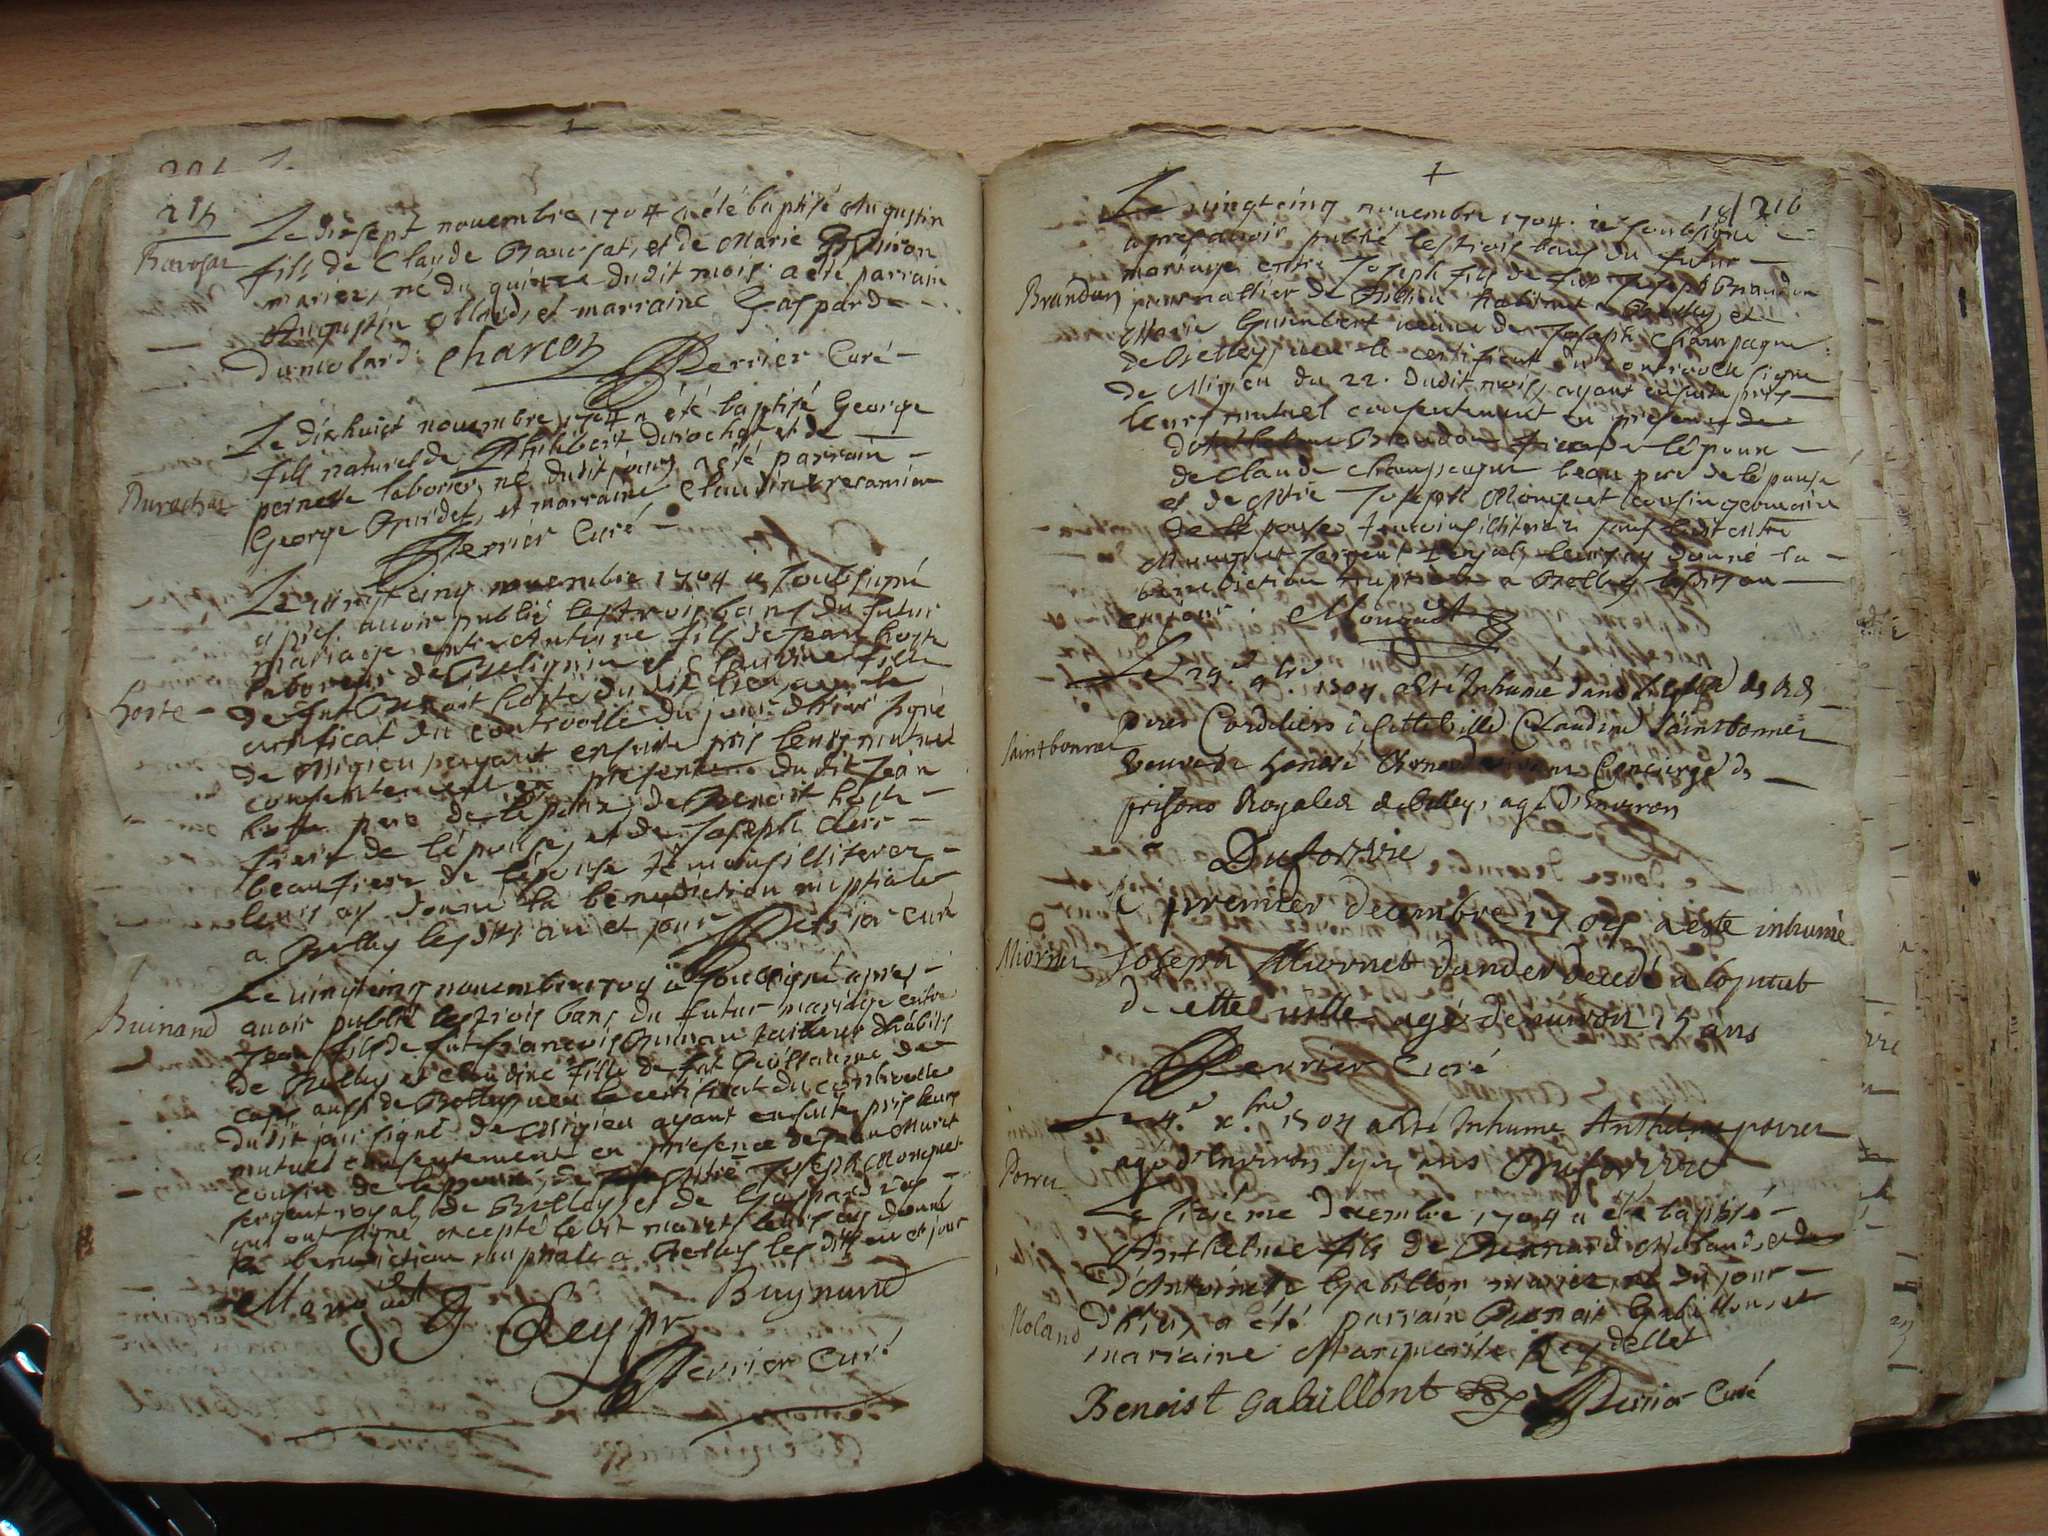 215
Le dixsept novembre 1704 a été baptisé Augustin
Bavosat
fils de Claude Bavosat, et de Marie
mariez, né du quinze dudit mois. a été parrain
Augustin Ollard, et marraine Gasparde
Dumolard. Charcot Perrier Curé
Le dixhuict novembre 1704 a été baptisé George
fils naturel de Philibert Durochat et de
Durochat
pernette laborier, né dudit jour, a été parrain
George et marraine Claudine recamier
Perrier Curé
Le vingtcinq novembre 1704 ie soubsigné
apres avoir publié les trois bans du futur
mariage entre Antoine fils de Jean hoste
laboreur de et Claudine fille
hoste
de fut Benoit hoste dudit lieu, veu le
certificat du controolle du jour d'hier signé
de Migieu, ayant ensuite pris leurs mutuel
consentement en presence dudit Jean
hoste pere de l'époux, de Benoit hoste
frere de l'épouse, et de Joseph
beaufrere de l'épouse témoins illiterez
leurs ay donné la benediction nuptiale
a Belley les dits an et jour Perrier curé
Le vingtcinq novembre 1704 ie soubsigné apres
Buinand
avoir publié les trois bans du futur mariage entre
Jean fils de fut François Buinan tailleur d'habits
de Belley et Claudine fille de fut Guillaume
aussi de Belley, veu le certificat du controolle
dudit jour signé de Migieu ayant ensuite pris leurs
mutuel consentement en presence de Jean Muret
cousin de l'époux, de Mtre Joseph Monguet
sergent royal de Belley, et de Gaspard rey
qui ont signé excepté ledit muret, leurs ay donné
la benediction nuptiale a Belley les dits an et jour
Monguet Rey pr Buynand
Perrier Curé
18/216
Le vingtcinq novembre 1704. ie soubsigné
apres avoir publié les trois bans du futur
mariage entre Joseph fils de fut Joseph Brandon
Brandon
journallier de habitant a Belley, et
Marie Guimbert veuve de Joseph Champagne
de Belley, veu le certificat du controolle signé
de Migieu du 22. dudit mois, ayant ensuite pris
leurs mutuel consentement en presence de
Brandon frere de l'époux
de Claude Champagne beau pere de l'épouse
et de Mtre Joseph Monguet cousin germain
de l'épouse, temoins illiterez sauf ledit Mtre
Monguet sergent royal, leurs ay donné la
benediction nuptiale a Belley les dits an
et jour Monguet
Le 29e 9bre 1704 a Eté Inhumé dans l'église des RR
peres Cordeliers de cette ville Claudine Saintbonnet
Saintbonnet
veuve de honoré vivant Concierge des
prisons Royales de belley, agé d'Environ
Duforvie
Le premier decembre 1704 a esté inhumé
Miornet
Joseph Miornet d'ander decedé a l'opital
de cette ville agé denviron 15 ans
Perrier Curé
Le 4e xbre 1704 a Eté Inhumé Anthelme porret
Porret
agé d'Environ ans Duforvie
Le sixieme decembre 1704 a été baptisé
Anthelme fils de Bernard Moland, et
D'Antoinette Gabillon mariez, né du jour
Moland
d'hier, a été parrain Benoit Gabillon, et
marraine Marguerite Reydellet
Benoist Gabillont Perrier Curé